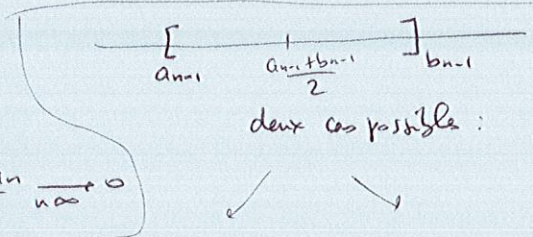 [ ]
aₙ₋₁ (aₙ₋₁+bₙ₋₁)/2 bₙ₋₁
deux cas possibles :
n → 0
n∞